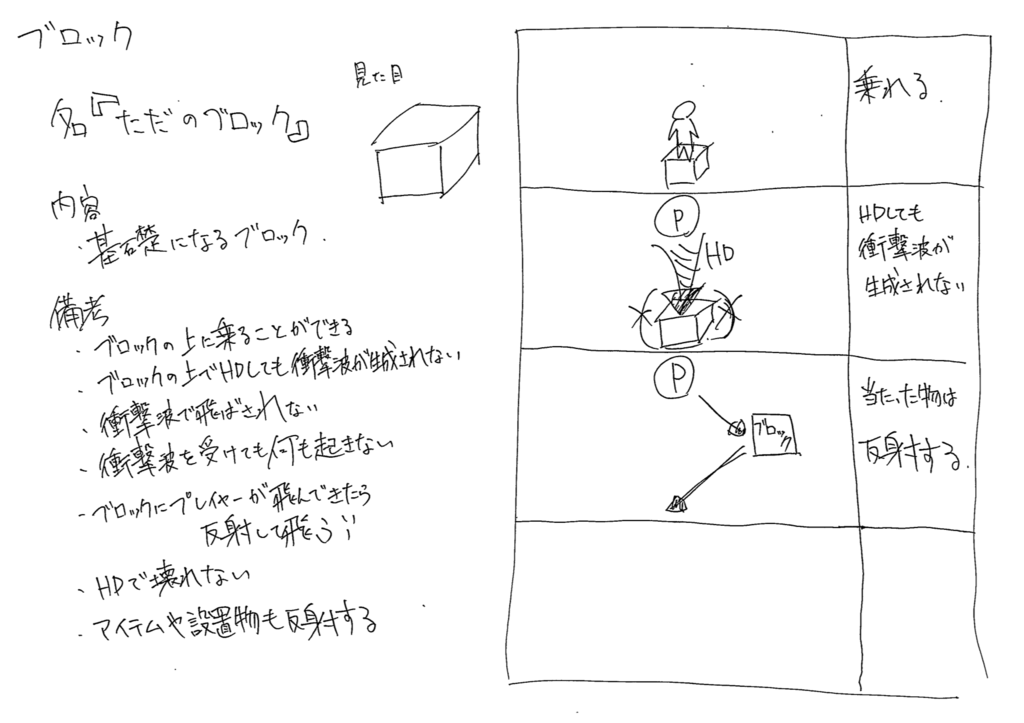 ブロック
名『ただのブロック』
見た目
内容
・基礎になるブロック.
備考
・ブロックの上に乗ることができる
・ブロックの上でHDしても衝撃波が生成されない
・衝撃波で飛ばされない
・衝撃波を受けても何も起きない
・ブロックにプレイヤーが飛んできたら
反射して飛ぶ
・HDで壊れない
・アイテムや設置物も反射する
乗れる.
P
HD
HDしても
衝撃波が
生成されない
P
ブロック
当たった物は
反射する.